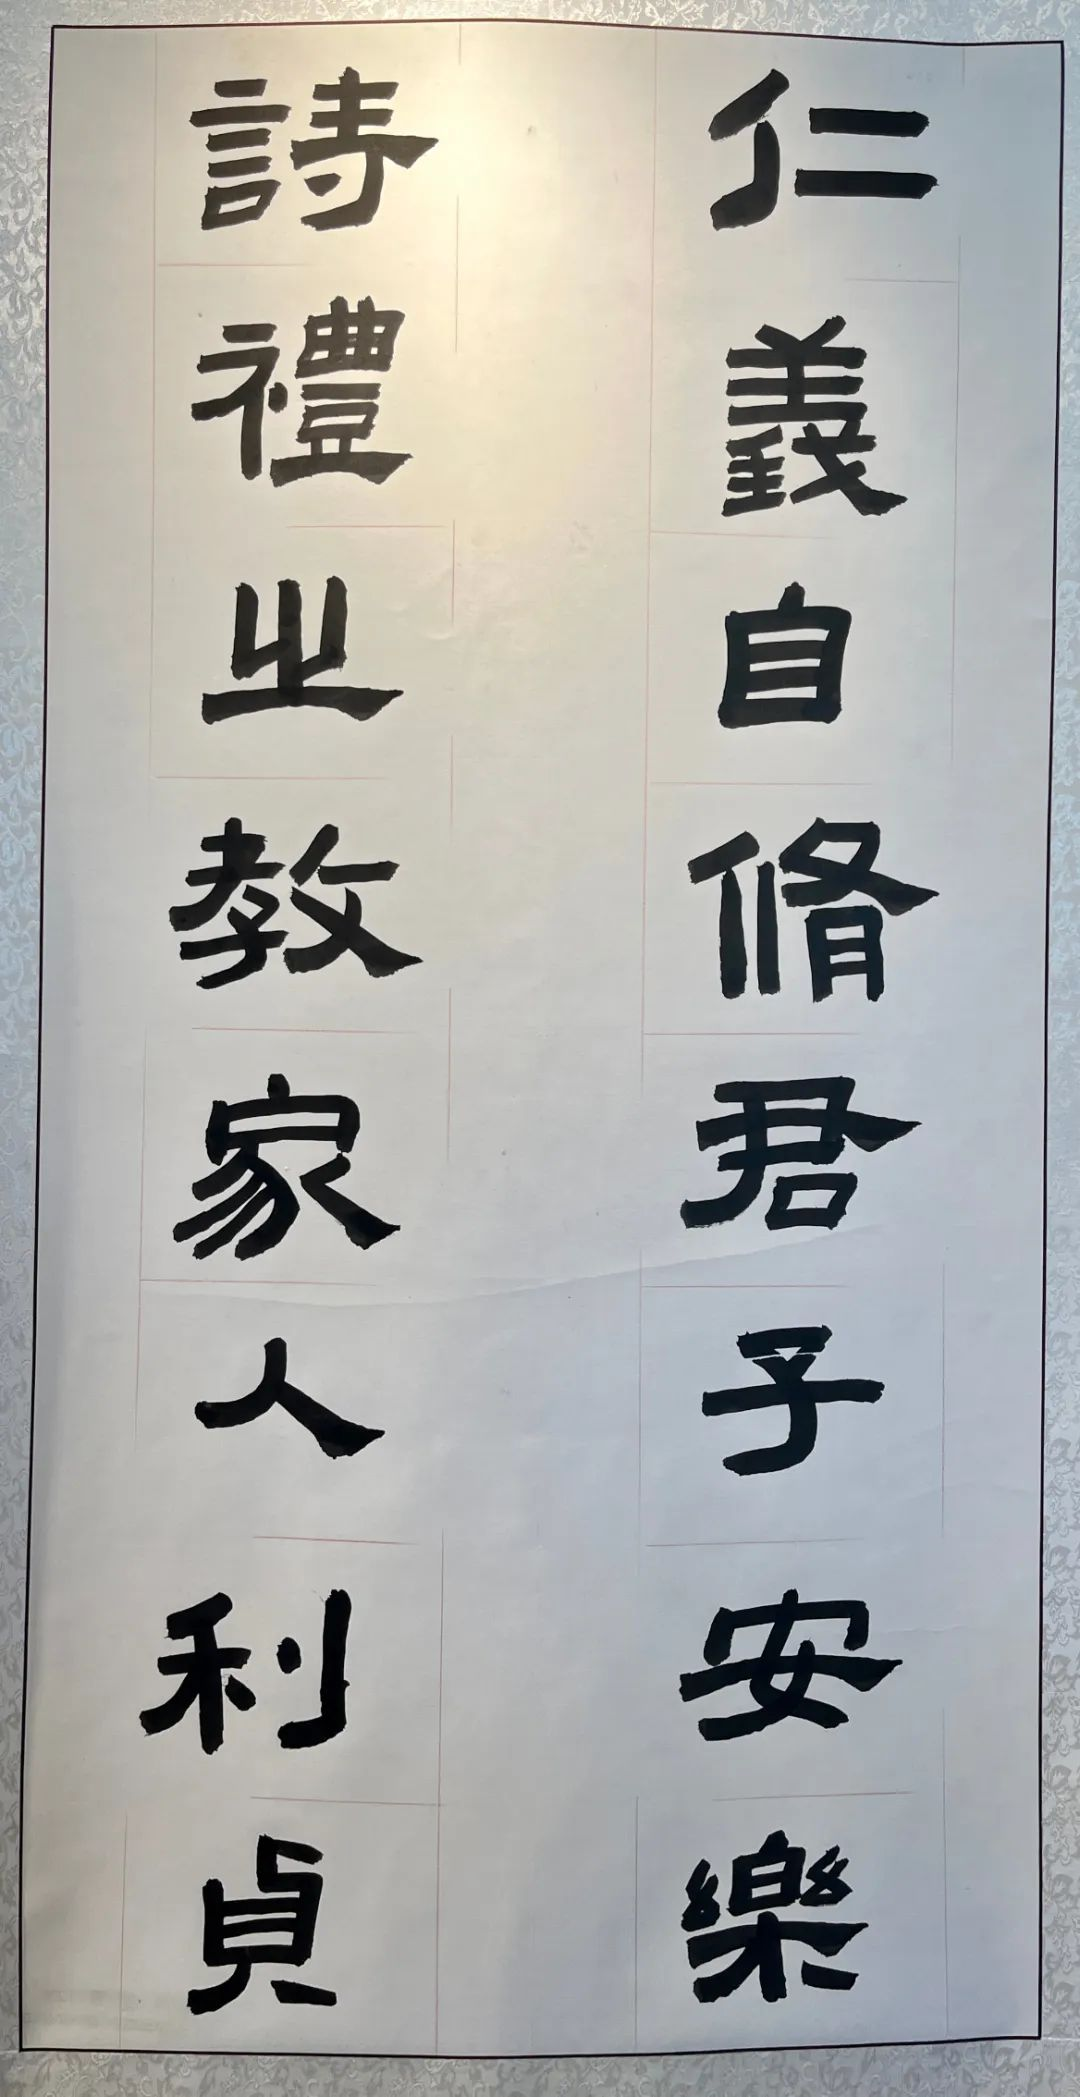 仁義自脩君子安樂
詩禮之教家人利貞